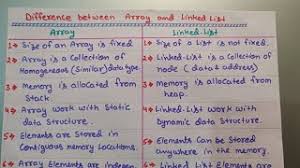 Difference between Array and Linked List
Array
1→ Size of an Array is fixed.
2→ Array is a Collection of
Homogeneous (Similar) data type.
3→ Memory is allocated from
Stack.
4→ Array work with Static
data Structure.
5→ Elements are Stored in
Contiguous memory Locations.
6→ Array Elements are Indepen
Linked-List
1→ Size of a List is not fixed.
2→ Linked-List is a Collection of
node (data & address)
3→ Memory is allocated from
heap.
4→ Linked-List work with
Dynamic data Structure.
5→ Elements can be Stored
anywhere in the memory.
6→ Linked List Elements are